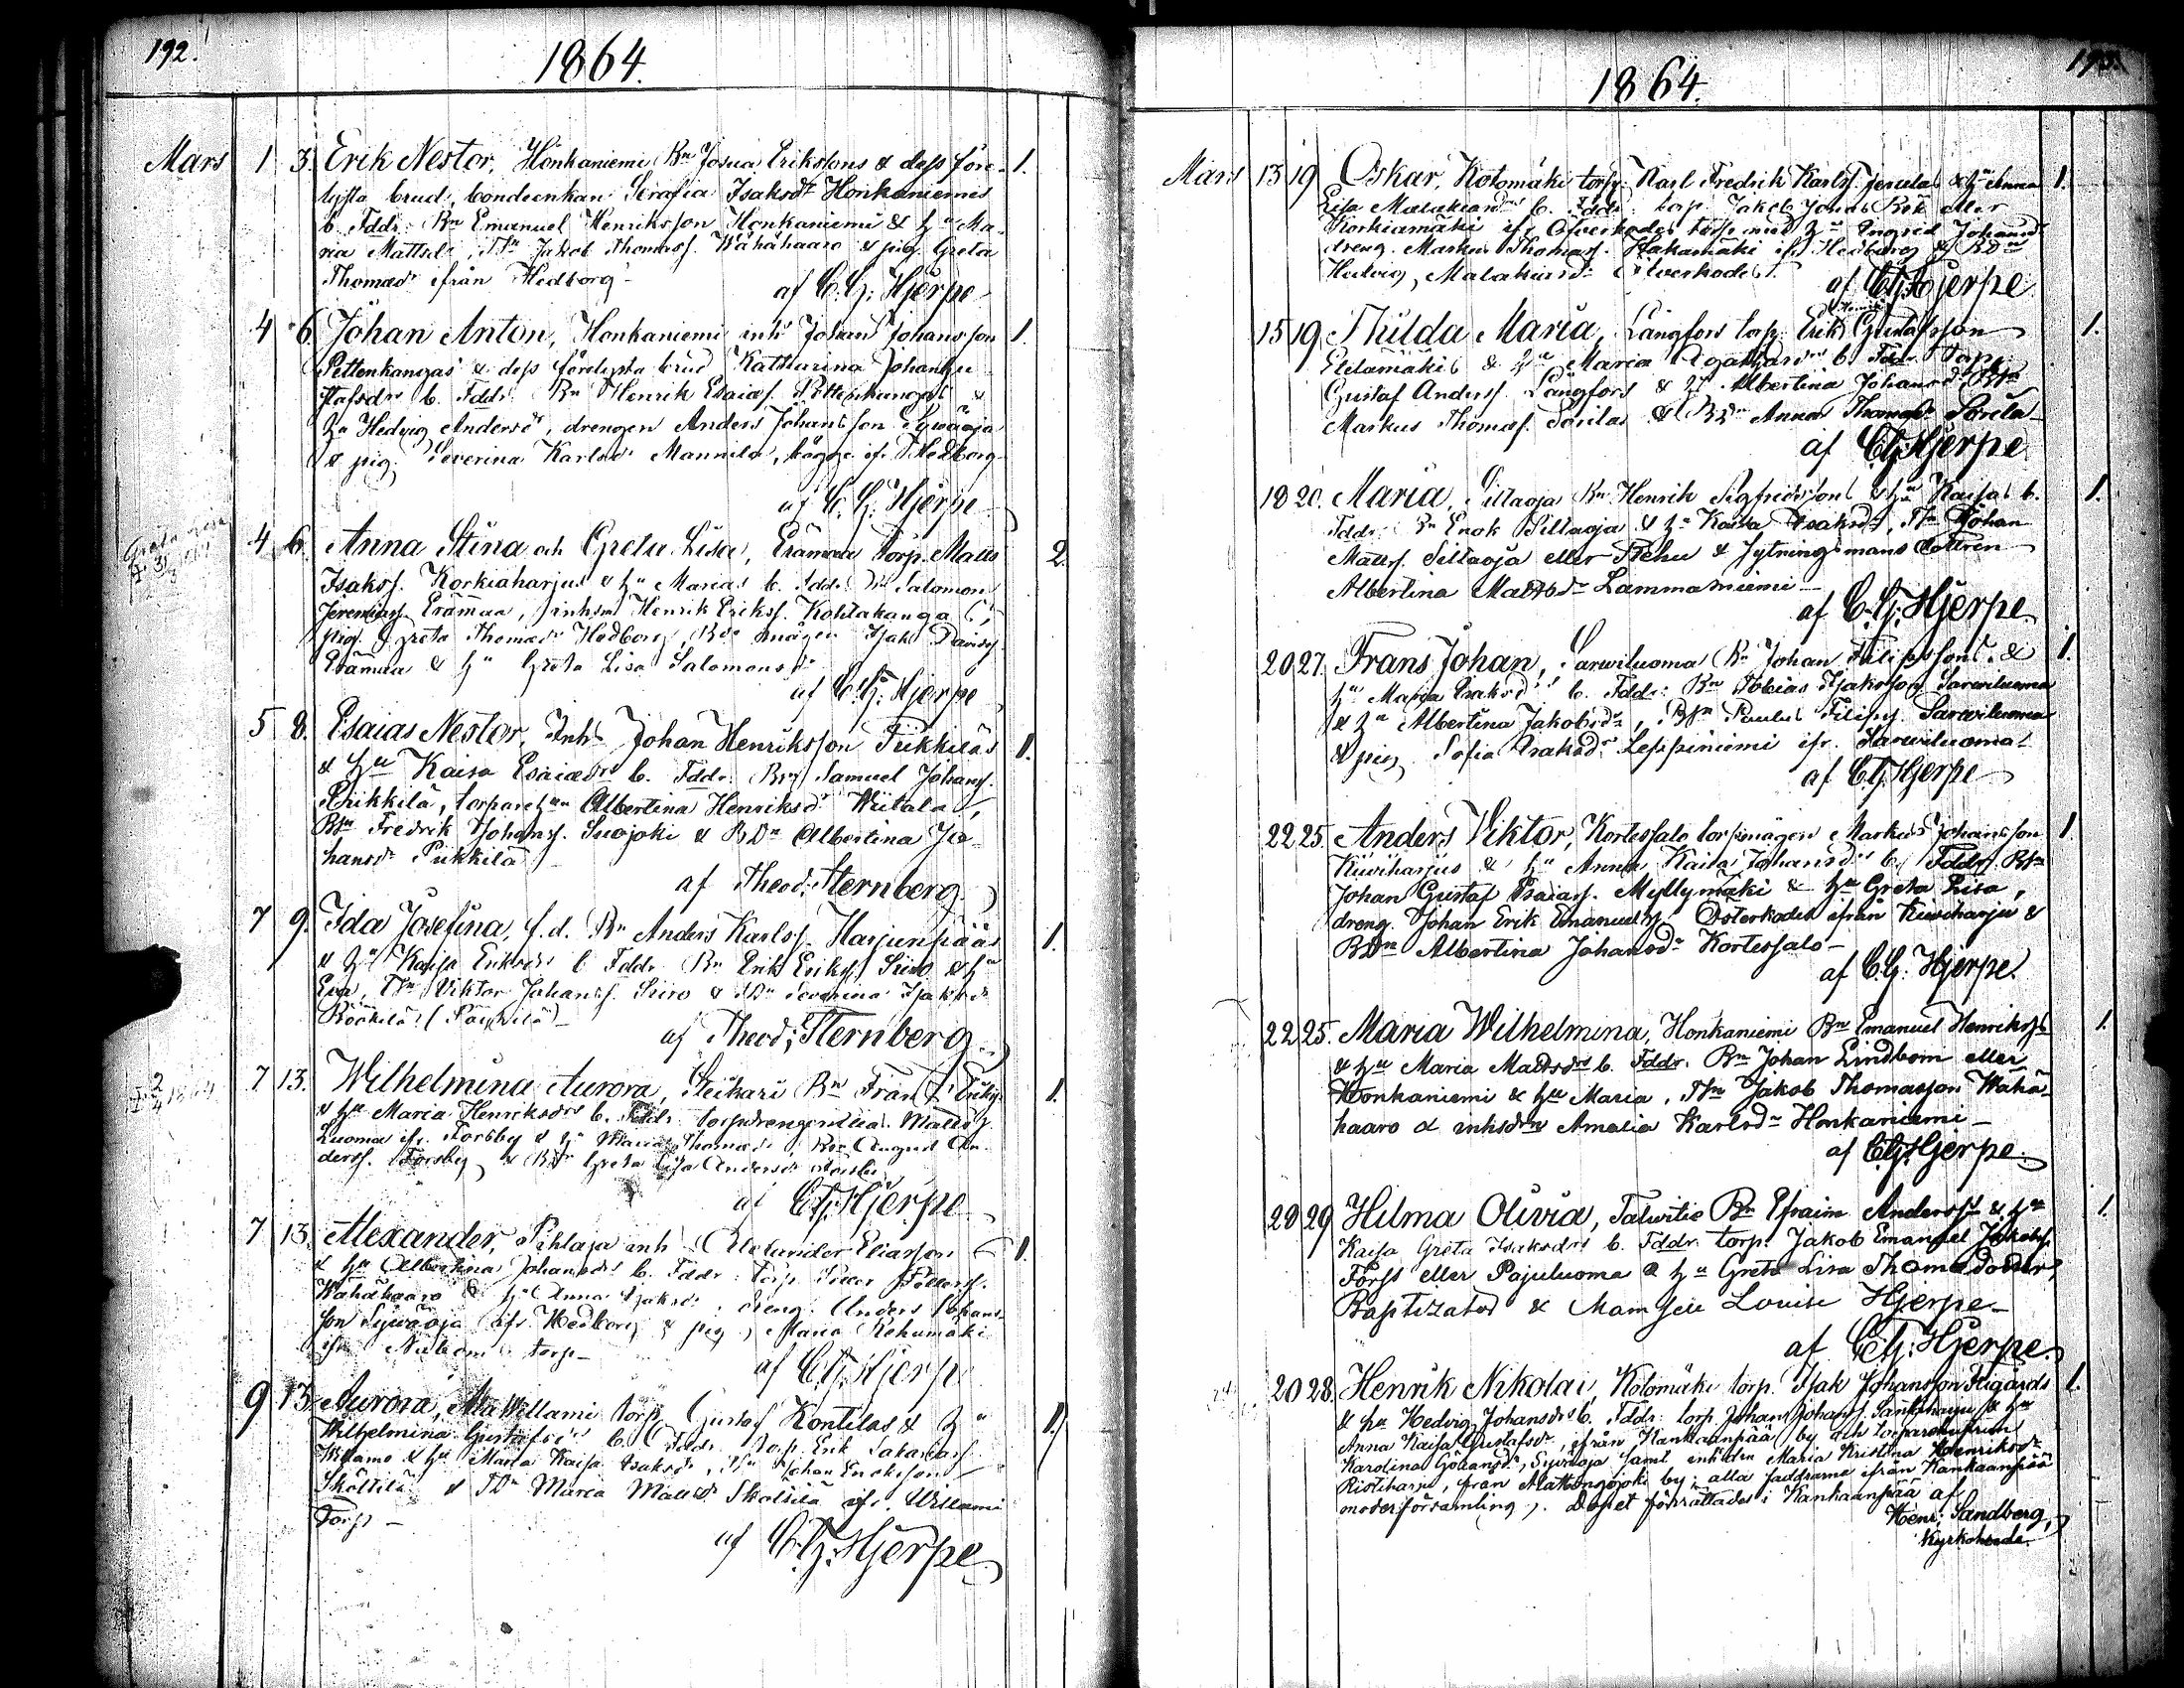 192.
1864.
Mars 1 3. Erik Nestor, Honkaniemi Bn Josua Erikssons & dess före- 1.
lysta brud, bondeenkan Serafia Isaksdr Honkaniemis
b. Fddr. Bn Emanuel Henriksson Honkaniemi & hu Ma-
ria Mattsdr, Jakob Thomass. Wähähaaro & pig. Greta
Thomasdr ifrån Hedborg -
af C. G. Hjerpe
4 6. Johan Anton, Honkaniemi inhs Johan Johansson 1.
Pettenkangas & dess förelysta brud Katharina Johan Gu-
stafsdrs b. Fddr. Bn Henrik Esaias. Pettenkangas &
hu Hedvig Andersdr, drengen Anders Johansson Sywäoja
& pig. Severina Karlsdr Mannila, bägge ifr. Hedborg
af C. G. Hjerpe
4 6. Anna Stina och Greta Lisa, Erämaa Torp. Matts 2.
Isakss. Korkiaharjus & hu Marias b. Fddr. Bn Salomon
Jeremiass. Erämaa, inhsn Henrik Erikss. Kohtakanga,
pig. Greta Thomasdr Hedborg, mågen Isak Davidss.
Erämaa & hu Greta Lisa Salomonsdr
af C. G. Hjerpe
5 8. Esaias Nestor, Inhs Johan Henriksson Pukkiläs 1.
& hu Kaisa Esaiædrs b. Fddr. Bn Samuel Johanss.
Pukkilä, torpare hun Albertina Henriksdr Wiitala,
BSn Fredrik Johanss. Suojoki & BDn Albertina Jo-
hansdr Pukkilä
af Theod; Sternberg
7 9. Ida Josefina, f.d. Bn Anders Karlss. Harjunpääs 1.
& hu Kaisa Eriksdrs b. Fddr. Bn Erik Erikss. Siiro & hu
Eva, Viktor Johanss. Siiro & Severina Isaksdr
Röökilä
af Theod; Sternberg
7 13. Wilhelmina Aurora, Bn Frans Erikss. 1.
& hu Maria Henriksdrs b. Fddr. torpdrengen Matts.
Luoma ifr. Forsby & hu Maria Thomasdr, August An-
derss. Forsby & Greta Lisa Andersdr
af C. G. Hjerpe
7 13. Alexander, Pihlaja inh Alexander Eliasson 1.
& hu Albertina Johansdrs b. Fddr. torp.
Wähähaaro & hu Anna Isaksdr, dreng. Anders Johans-
son Sywäoja ifr. Hedborg & pig. Maria Rehumäki
ifr. torp -
af C. G. Hjerpe
9 13. Aurora, Ala Willami torp. Gustaf Kontilas & hu 1.
Wilhelmina Gustafsdrs b. Fddr. Torp. Erik
Willamo & hu Maria Kaisa Isaksdr, Johan Enoksson
Skyttilä & Maria Mattsdr Skyttilä ifr. Willami
Torp -
af C. G. Hjerpe
1864.
Mars 13 19 Oskar, Kotomäki torp. Karl Fredrik Karlss. & hu Anna 1.
Lisa b. Fddr. torp. Jakob
Korkiamäki ifr. torp med hu Ingrid Johansdr
dreng. Markus Thomass. Hakamäki ifr. Hedborg & BDn
Hedvig
af C. G. Hjerpe
15 19 Thilda Maria, Långfors torp. Erik Gustafsson 1.
Etelämäkis & hu Maria b. Fddr. Torp.
Gustaf Anderss. Långfors & hu Albertina Johansdr, BSn
Markus Thomass. Sorila & BDn Anna Thomasdr Sorila -
af C. G. Hjerpe
18 20. Maria, Sillaoja Bn Henrik Sigfridssons & hu Kaisas b. 1.
Fddr. Bn Enok Sillaoja & hu Kaisa Isaksdr, Johan
Matts. Sillaoja eller & Jytningsmans dottren
Albertina Mattsdr Lammasniemi -
af C. G. Hjerpe.
20 27. Frans Johan, Sarwiluoma Bn Johan Filipssons & 1.
hu Maria Isaksdrs b. Fddr: Bn Tobias Isaksson Sarwiluoma
& hu Albertina Jakobsdr, BSn Paulus Filipss. Sarwiluoma
& pig. Sofia Isaksdr Leppiniemi ifr. Sarwiluoma
af C. G. Hjerpe
22 25. Anders Viktor, Kortessalo torpmågen Markus Johansson 1.
Kiwiharjus & hu Anna Kaisa Johansdrs b. Fddr. BSn
Johan Gustaf Esaiass. Myllymäki & hu Greta Lisa,
dreng. Johan Erik Emanuels. ifrån Kiwiharju &
BDn Albertina Johansdr Kortessalo -
af C. G. Hjerpe.
22 25. Maria Wilhelmina, Honkaniemi Bn Emanuel Henrikss 1.
& hu Maria Mattsdrs b. Fddr. Bn Johan Lindbom eller
Honkaniemi & hu Maria, Jakob Thomasson Wähä-
haaro & inhsdrn Amalia Karlsdr Honkaniemi -
af C. G. Hjerpe.
28 29 Hilma Olivia, Talwitie Bn Efraim Anderss & hu 1.
Kaisa Greta Isaksdrs b. Fddr. torp. Jakob Emanuel Jakobs.
Forss eller Pajuluoma & hu Greta Lisa Thomædotter,
Baptizatus & Mamsell Louise Hjerpe -
af C. G. Hjerpe.
20 28. Henrik Nikolai, Kotomäki torp. Isak Johansson 1.
& hu Hedvig Johansdrs b. Fddr: torp. Johan Johanss. & hu
Anna Kaisa Gustafsdr, ifrån Kankaanpää by och torparehustrun
Karolina Göransdr, Sywäoja samt enkedn Maria Kristina Henriksdr
Ristiharju, från by; alla faddrarne ifrån Kankaanpää
moderförsamling. Dopet förrättades i Kankaanpää af
Henr; Sandberg,
Kyrkoherde.